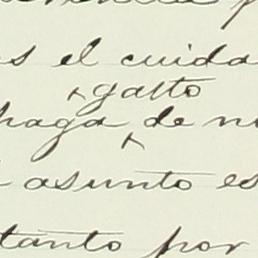 s el cuida
gasto
haga de n
asunto es
tanto por